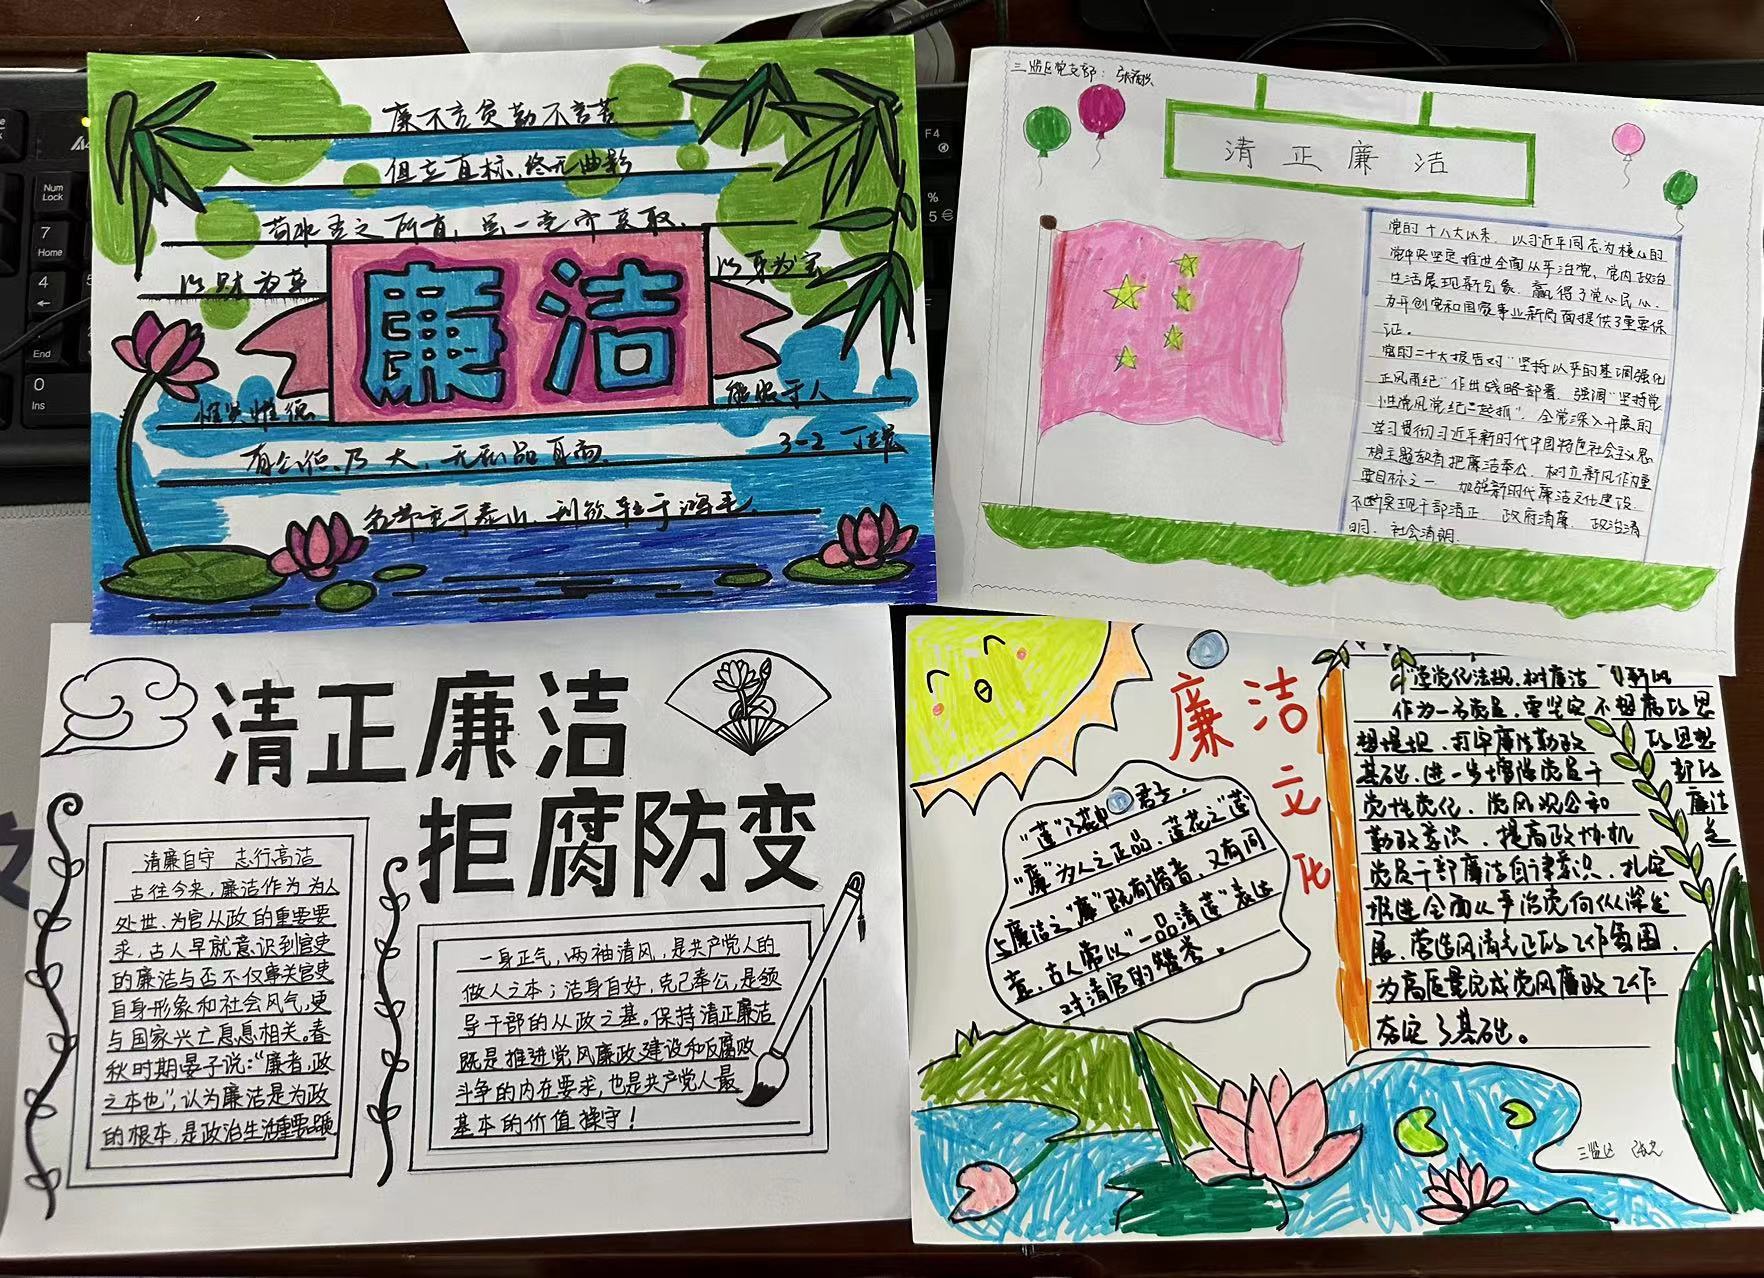 廉不言贫勤不言苦
但立直标,终无曲影
苟非吾之所有,虽一毫而莫取.
以财为草
以身为宝
廉洁
惟贤惟德
能服于人
有公德乃大,无私品自高
3-2
名节重于泰山,利欲轻于鸿毛.
三监区党支部:
清正廉洁
党的十八大以来,以习近平同志为核心的
党中央坚定推进全面从严治党,党内政治
生活展现新气象,赢得了党心民心,
为开创党和国家事业新局面提供了重要保
证。
党的二十大报告对"坚持以严的基调强化
正风肃纪"作出战略部署,强调"坚持党
性党风党纪一起抓",全党深入开展的
学习贯彻习近平新时代中国特色社会主义思
想主题教育把廉洁奉公,树立新风作为重
要目标之一 加强新时代廉洁文化建设
不断实现干部清正 政府清廉 政治清
明、社会清朗.
清正廉洁
拒腐防变
清廉自守 志行高洁
古往今来,廉洁作为为人
处世、为官从政的重要要
求,古人早就意识到官吏
的廉洁与否不仅事关官吏
自身形象和社会风气,更
与国家兴亡息息相关。春
秋时期晏子说:“廉者,政
之本也”,认为廉洁是为政
的根本,是政治生活重要主题
一身正气,两袖清风,是共产党人的
做人之本;洁身自好,克己奉公,是领
导干部的从政之基。保持清正廉洁
既是推进党风廉政建设和反腐败
斗争的内在要求,也是共产党人最
基本的价值操守!
廉洁
文
化
“莲”乃花中君子,
“廉”为人之正品,莲花之“莲
与廉洁之“廉”既有谐音,又有同
意,古人常以“一品清莲”表达
对清官的赞誉。
学党纪法规、树廉洁 新风
作为一名党员,要坚定不想腐的思
想堤坝、打牢廉洁勤政 的思想
基础,进一步增强党员干 部的
党性党纪、党风观念和 廉洁
勤政意识、提高政协机
党员干部廉洁自律意识,扎实
推进全面从严治党向纵深发
展、营造风清气正的工作氛围,
为高质量完成党风廉政工作
奠定了基础。
三监区